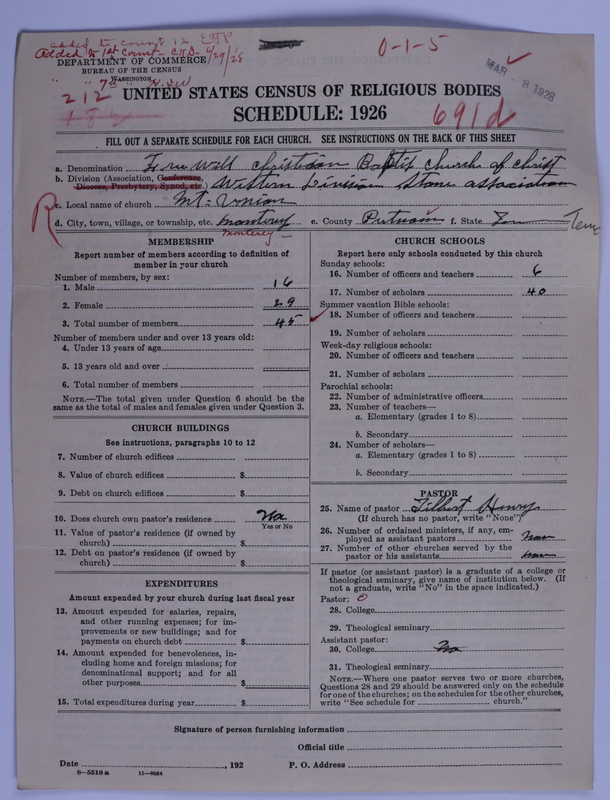 added to count 12 EJP
Added to 1st Count CKD 6/29/28
0-1-5
DEPARTMENT OF COMMERCE
BUREAU OF THE CENSUS
WASHINGTON
MAR -8 1928
212
UNITED STATES CENSUS OF RELIGIOUS BODIES
SCHEDULE: 1926
691d
FILL OUT A SEPARATE SCHEDULE FOR EACH CHURCH. SEE INSTRUCTIONS ON THE BACK OF THIS SHEET
a. Denomination Free Will Christian Baptis Church of Christ
b. Division (Association, Conference, Diocese, Presbytery, Synod, etc.) Western Division Stone association
c. Local name of church Mt. Union
R
d. City, town, village, or township, etc. Montery e. County Putnam f. State Tenn
Monterey
MEMBERSHIP
Report number of members according to definition of
member in your church
Number of members, by sex:
1. Male 16
2. Female 29
3. Total number of members 45
Number of members under and over 13 years old:
4. Under 13 years of age
5. 13 years old and over
6. Total number of members
NOTE.—The total given under Question 6 should be
same as the total of males and females given under Question 3.
CHURCH BUILDINGS
See instructions, paragraphs 10 to 12
7. Number of church edifices
8. Value of church edifices $
9. Debt on church edifices $
10. Does church own pastor's residence No
Yes or No
11. Value of pastor's residence (if owned by
church) $
12. Debt on pastor's residence (if owned by
church) $
EXPENDITURES
Amount expended by your church during last fiscal year
13. Amount expended for salaries, repairs,
and other running expenses; for im-
provements or new buildings; and for
payments on church debt $
14. Amount expended for benevolences, in-
cluding home and foreign missions; for
denominational support; and for all
other purposes $
15. Total expenditures during year $
CHURCH SCHOOLS
Report here only schools conducted by this church
Sunday schools:
16. Number of officers and teachers 6
17. Number of scholars 40
Summer vacation Bible schools:
18. Number of officers and teachers
19. Number of scholars
Week-day religious schools:
20. Number of officers and teachers
21. Number of scholars
Parochial schools:
22. Number of administrative officers
23. Number of teachers—
a. Elementary (grades 1 to 8)
b. Secondary
24. Number of scholars—
a. Elementary (grades 1 to 8)
b. Secondary
PASTOR
25. Name of pastor Filbert Henry
(If church has no pastor, write "None")
26. Number of ordained ministers, if any, em-
ployed as assistant pastors
27. Number of other churches served by the
pastor or his assistants
If pastor (or assistant pastor) is a graduate of a college or
theological seminary, give name of institution below. (If
not a graduate, write "No" in the space indicated.)
Pastor: 0
28. College
29. Theological seminary
Assistant pastor:
30. College No
31. Theological seminary
NOTE.—Where one pastor serves two or more churches,
Questions 28 and 29 should be answered only on the schedule
for one of the churches; on the schedules for the other churches,
write "See schedule for church."
Signature of person furnishing information
Official title
Date , 192 P. O. Address
8—5518a 11—9684